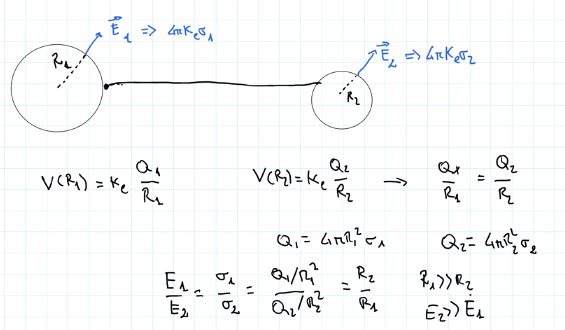 E⃗₁ => 4πKₑσ₁
R₁
E⃗₂ => 4πKₑσ₂
R₂
V(R₁) = Kₑ Q₁/R₁
V(R₂) = Kₑ Q₂/R₂ → Q₁/R₁ = Q₂/R₂
Q₁ = 4πR₁²σ₁ Q₂ = 4πR₂²σ₂
E₁/E₂ = σ₁/σ₂ = (Q₁/R₁²)/(Q₂/R₂²) = R₂/R₁
R₁ >> R₂
E₂ >> E₁